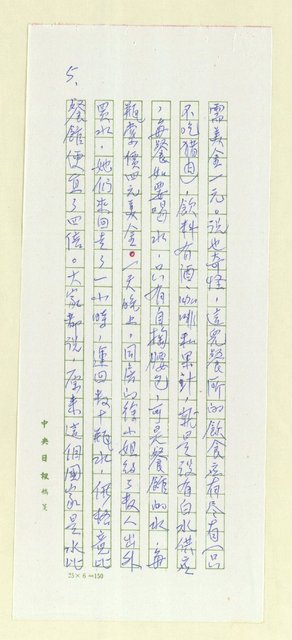 需美金一元。說也奇怪,這兒餐所的飲食應有盡有(只
不吃猪肉),飲料有酒、咖啡和果汁,就是沒有白水供應
,每餐如要喝水,只有自掏腰包,可是餐館的水,每
瓶索價四元美金。一天晚上,同房的徐小姐約了數人出外
買水,她們來回走了一小時,運回數十瓶水,價格竟比
餐館便宜了四倍。大家都說,原來這個國家是水比
5.
中央日報稿箋
25×6=150